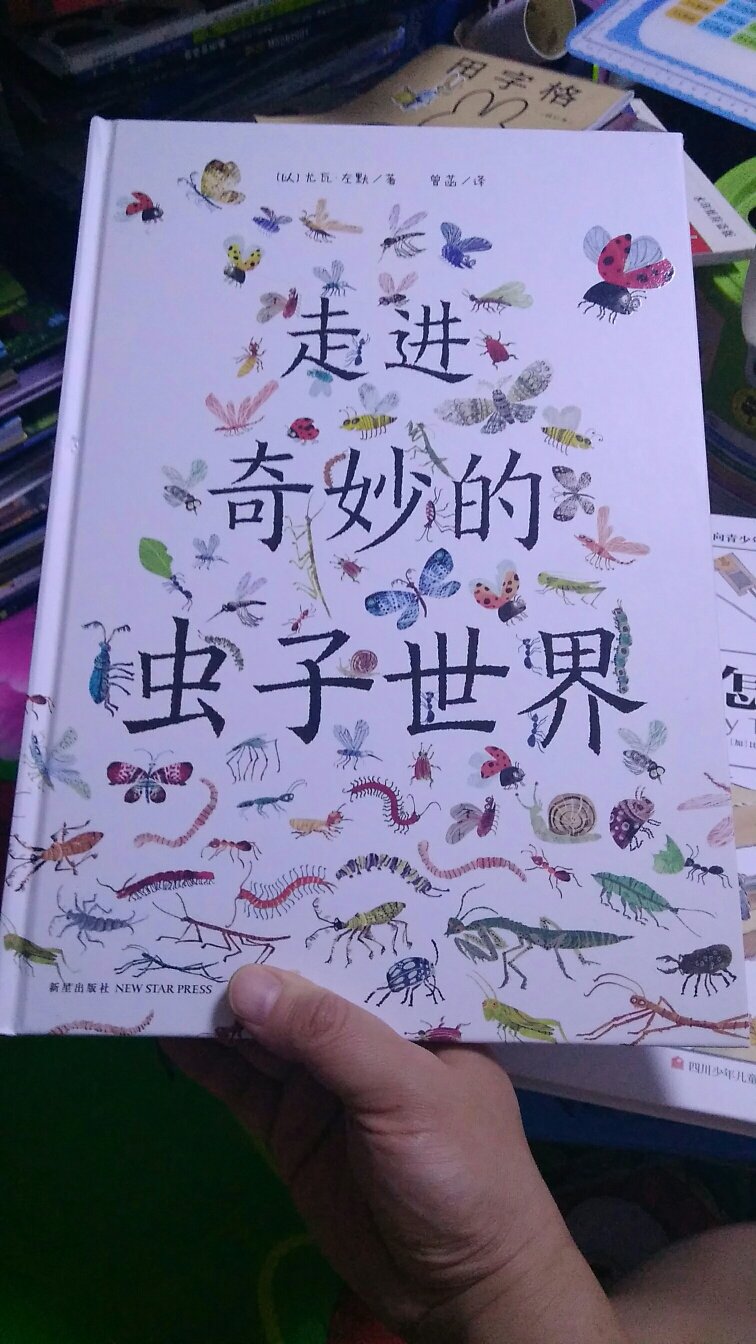 田字格
[以]尤瓦·左默/著 曾菡/译
走进
奇妙的
虫子世界
新星出版社 NEW STAR PRESS
向青少年
怎
四川少年儿童